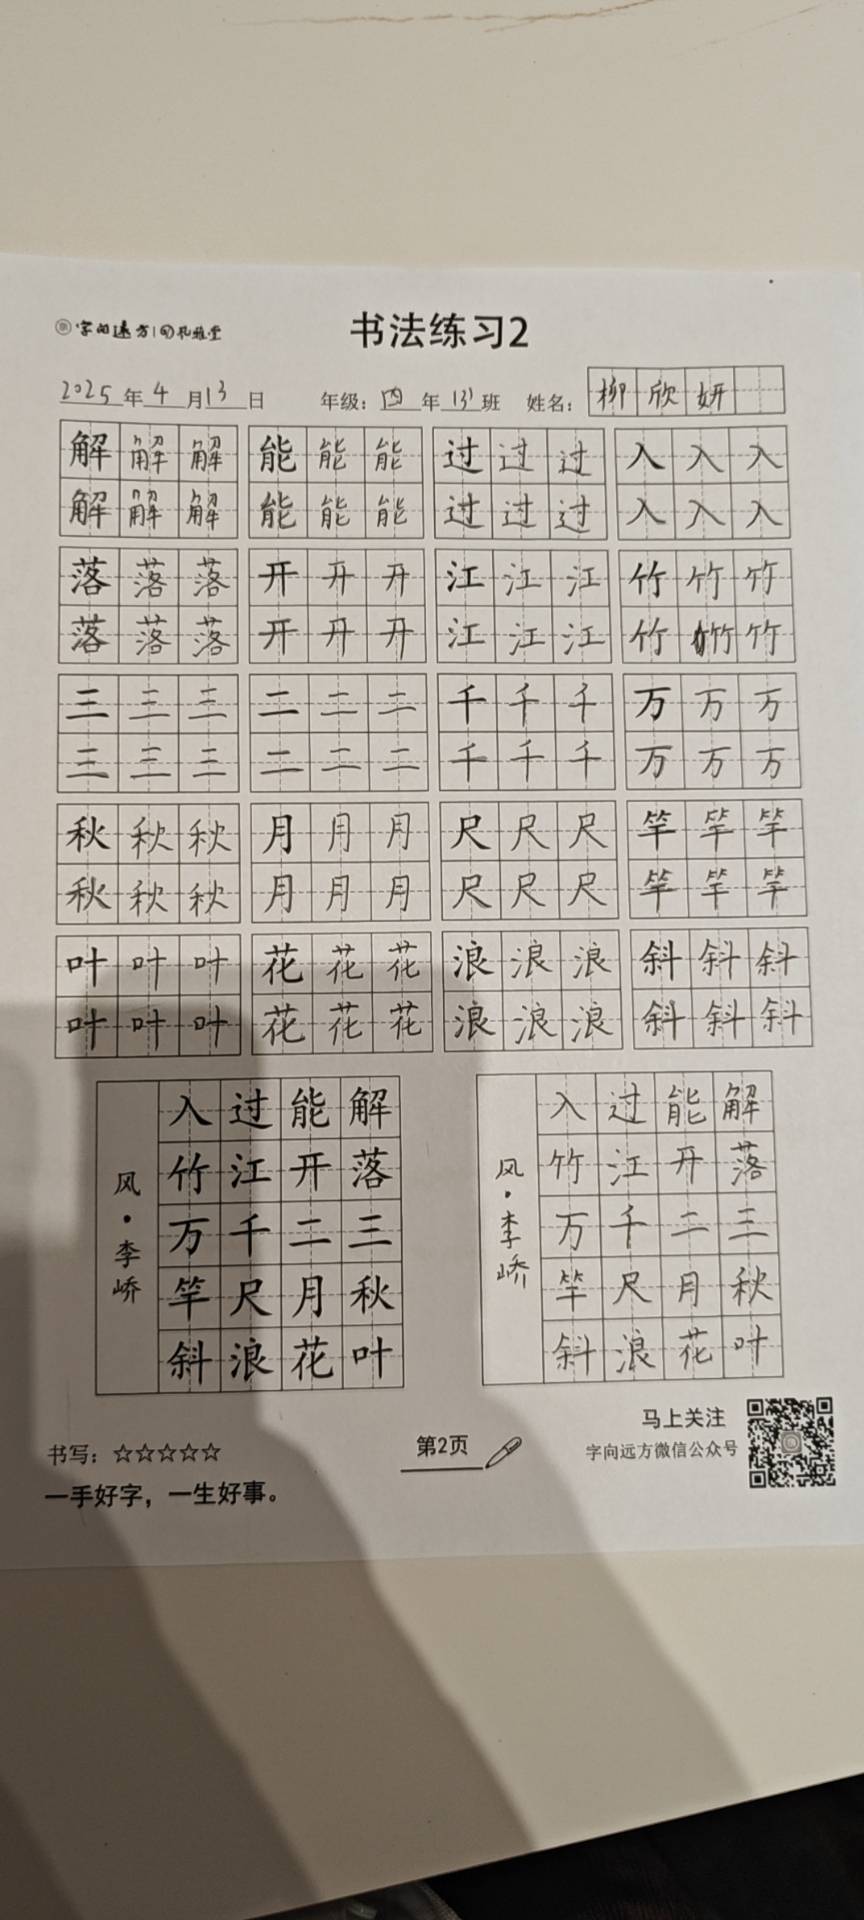 字向远方 书法练习2
2025年4月13日 年级：四年131班 姓名：柳欣妍
解解解 能能能 过过过 入入入
解解解 能能能 过过过 入入入
落落落 开开开 江江江 竹竹竹
落落落 开开开 江江江 竹竹竹
三三三 二二二 千千千 万万万
三三三 二二二 千千千 万万万
秋秋秋 月月月 尺尺尺 竿竿竿
秋秋秋 月月月 尺尺尺 竿竿竿
叶叶叶 花花花 浪浪浪 斜斜斜
叶叶叶 花花花 浪浪浪 斜斜斜
解落三秋叶
能开二月花
过江千尺浪
入竹万竿斜
风·李峤
解落三秋叶
能开二月花
过江千尺浪
入竹万竿斜
风·李峤
书写：☆☆☆☆☆
一手好字，一生好事。
第2页
马上关注
字向远方微信公众号